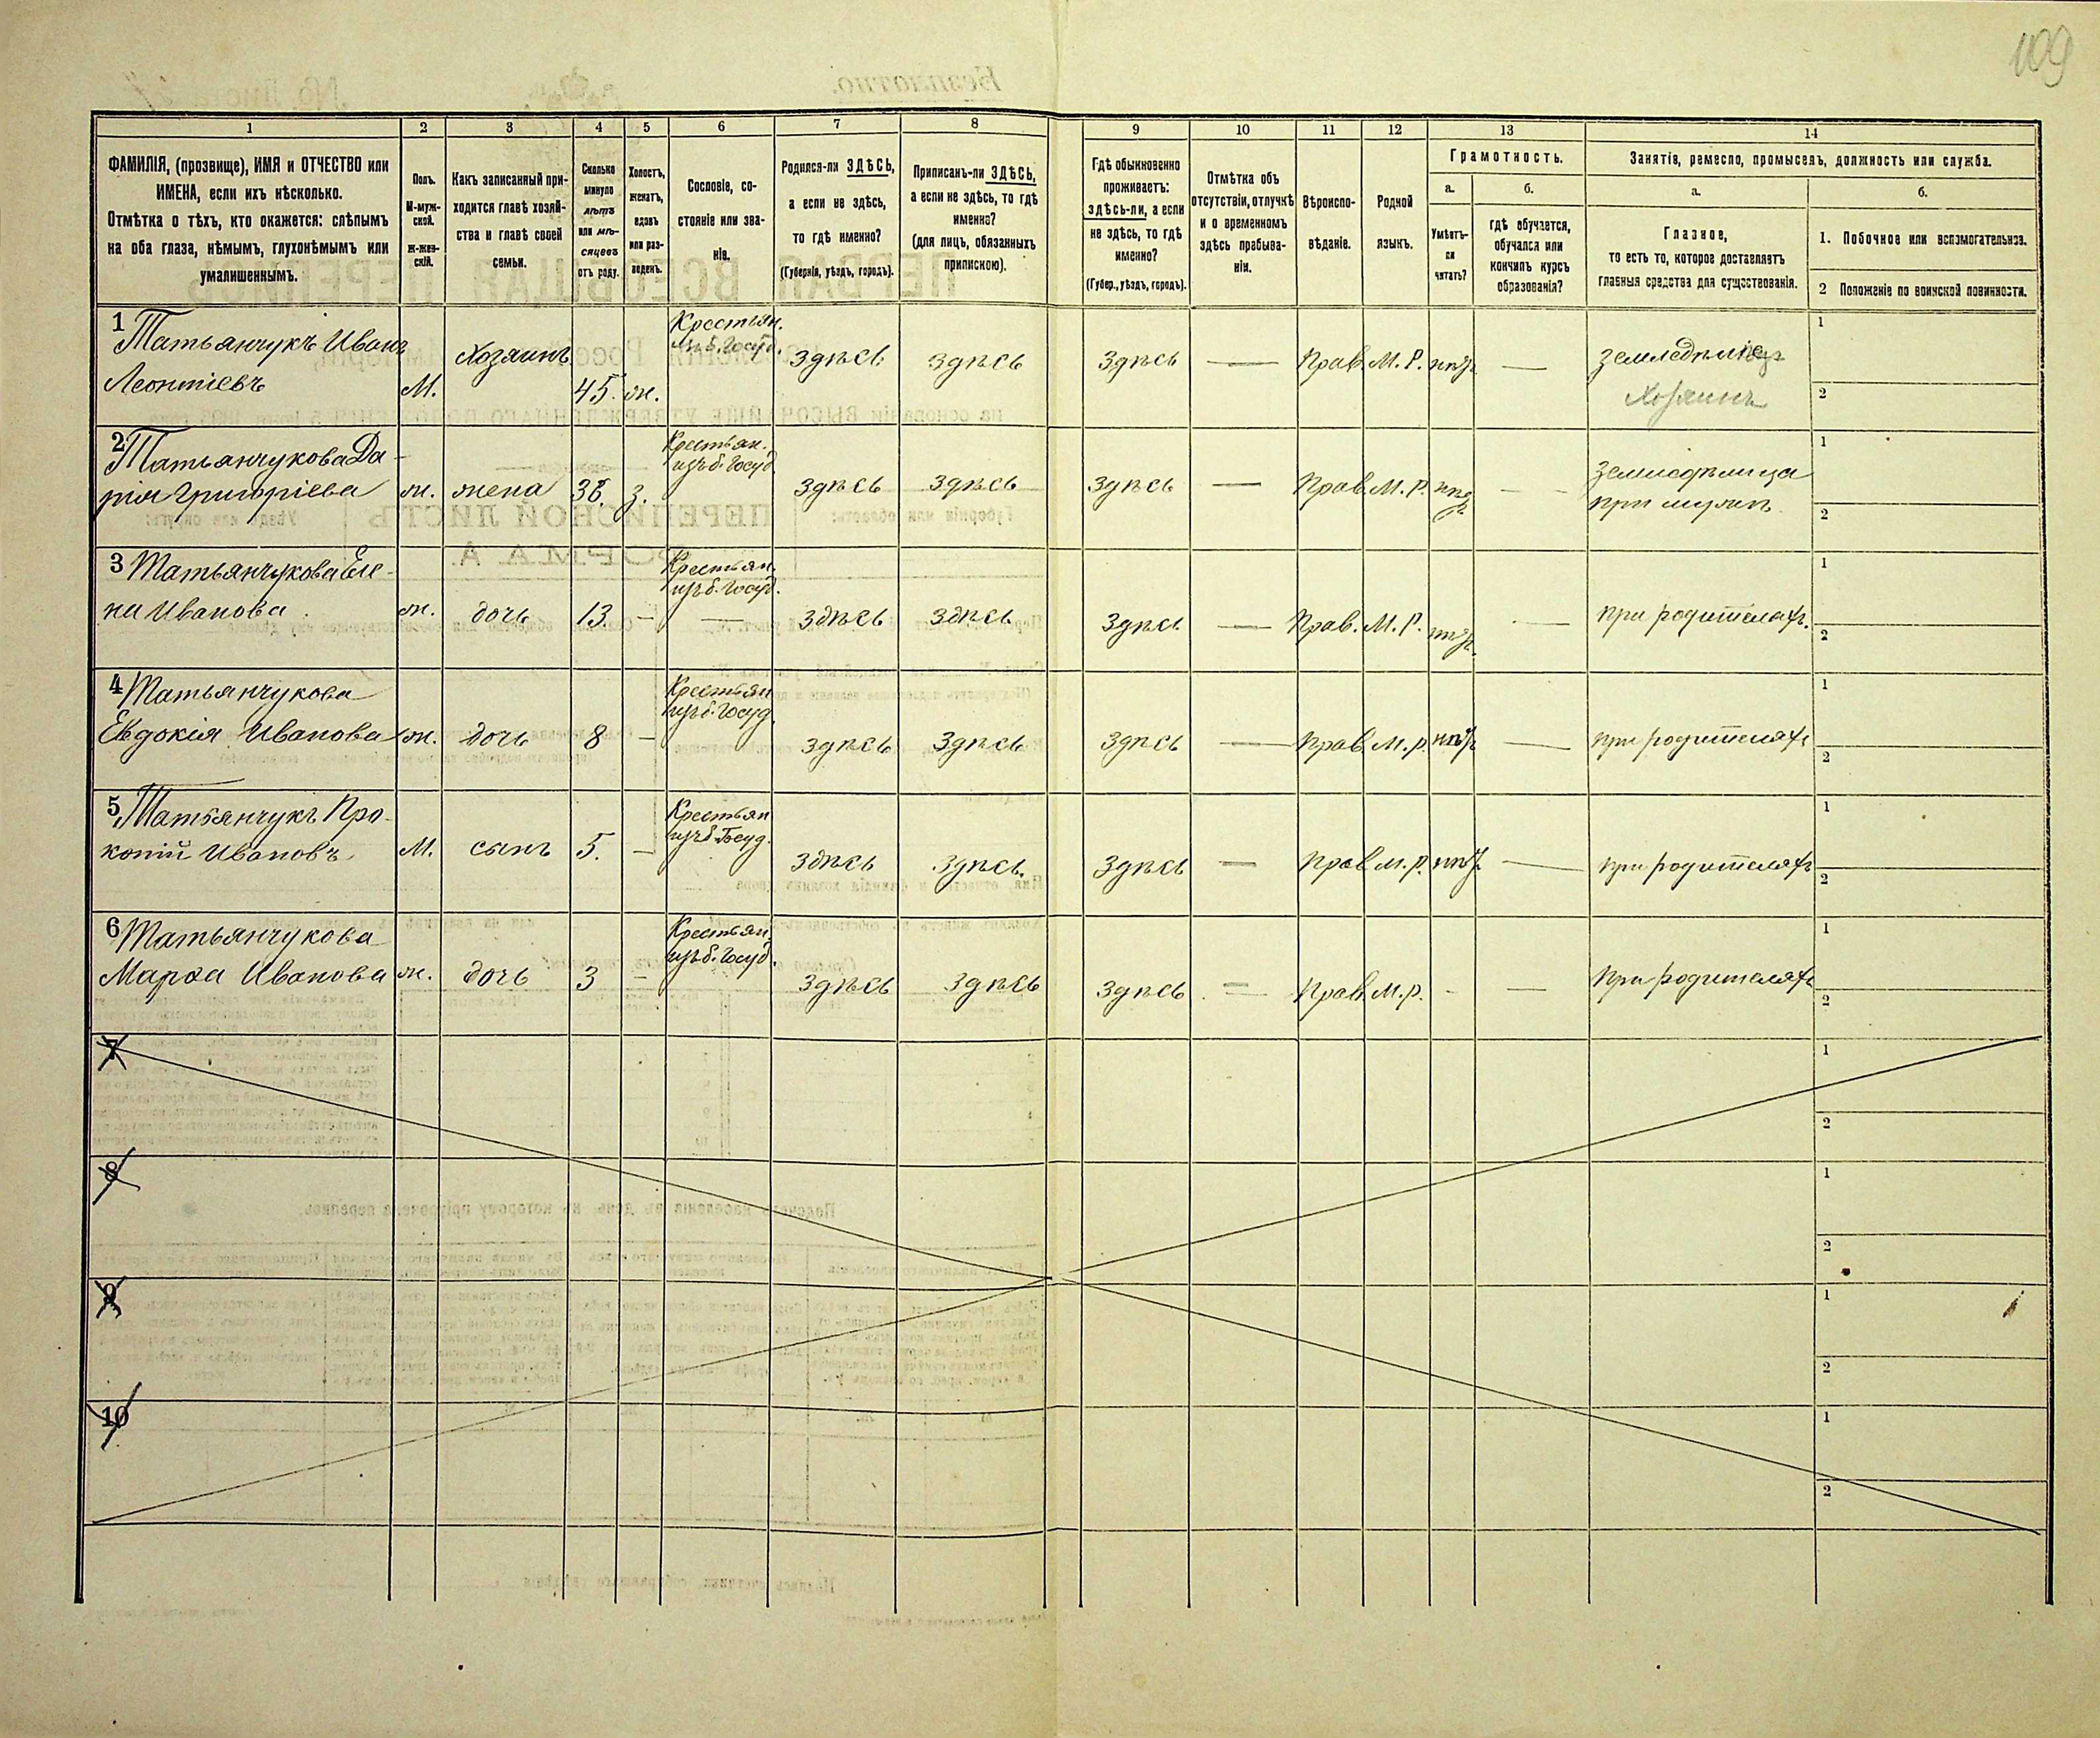 109
1
2
3
4
5
6
7
8
9
10
11
12
13
14
ФАМИЛІЯ, (прозвище), ИМЯ и ОТЧЕСТВО или
ИМЕНА, если ихъ нѣсколько.
Отмѣтка о тѣхъ, кто окажется: слѣпымъ
на оба глаза, нѣмымъ, глухонѣмымъ или
умалишеннымъ.
Полъ.
М-муж-
ской.
Ж-жен-
скій.
Какъ записанный при-
ходится главѣ хозяй-
ства и главѣ своей
семьи.
Сколько
минуло
лѣтъ
или мѣ-
сяцевъ
отъ роду.
Холостъ,
женатъ,
вдовъ
или раз-
веденъ.
Сословіе, со-
стояніе или зва-
ніе.
Родился-ли ЗДѢСЬ,
а если не здѣсь,
то гдѣ именно?
(Губернія, уѣздъ, городъ).
Приписанъ-ли ЗДѢСЬ,
а если не здѣсь, то гдѣ
именно?
(для лицъ, обязанныхъ
припискою).
Гдѣ обыкновенно
проживаетъ:
здѣсь-ли, а если
не здѣсь, то гдѣ
именно?
(Губер., уѣздъ, городъ).
Отмѣтка объ
отсутствіи, отлучкѣ
и о временномъ
здѣсь пребыва-
ніи.
Вѣроиспо-
вѣданіе.
Родной
языкъ.
Грамотность.
а.
б.
Умѣетъ-
ли
читать?
гдѣ обучается,
обучался или
кончилъ курсъ
образованія?
Занятіе, ремесло, промыселъ, должность или служба.
а.
б.
Главное,
то есть то, которое доставляетъ
главныя средства для существованія.
1. Побочное или вспомогательное.
2 Положеніе по воинской повинности.
1 Татьянчукъ Иванъ
Леонтіевъ
М.
Хозяинъ
45.
ж.
Крестьян.
изъ б. Госуд.
здѣсь
здѣсь
здѣсь
—
Прав.
М. Р.
—
земледѣлецъ
Хозяинъ
1
2
2 Татьянчукова Да-
рія Григоріева
ж.
жена
38.
з.
Крестьян.
изъ б. Госуд.
здѣсь
здѣсь
здѣсь
—
Прав.
М. Р.
—
земледѣлица
при мужѣ
1
2
3 Татьянчукова Еле-
на Иванова
ж.
дочь
13
—
Крестьян.
изъ б. Госуд.
—
здѣсь
здѣсь
здѣсь
—
Прав.
М. Р.
—
при родителяхъ.
1
2
4 Татьянчукова
Евдокія Иванова
ж.
дочь
8
—
Крестьян
изъ б. Госуд.
здѣсь
здѣсь
здѣсь
—
Прав.
М. р.
—
при родителяхъ
1
2
5 Татьянчукъ Про-
копій Ивановъ
М.
сынъ
5.
—
Крестьян
изъ б. Госуд.
здѣсь
здѣсь.
здѣсь
—
Прав.
М. р.
—
при родителяхъ
1
2
6 Татьянчукова
Марѳа Иванова
ж.
дочь
3
—
Крестьян
изъ б. Госуд.
здѣсь
здѣсь
здѣсь
—
Прав.
М. р.
-
—
При родителяхъ
1
2
7
1
2
8
1
2
9
1
2
10
1
2